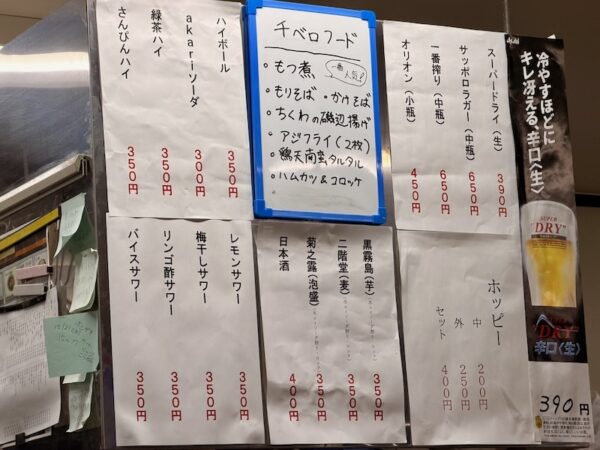 ハイボール 350円
akariソーダ 300円
緑茶ハイ 350円
さんぴんハイ 350円
千ベロフード
一番人気!
・もつ煮
・もりそば ・かけそば
・ちくわの磯辺揚げ
・アジフライ(2枚)
・鶏天南蛮タルタル
・ハムカツ&コロッケ
スーパードライ(生) 390円
サッポロラガー(中瓶) 650円
一番搾り(中瓶) 650円
オリオン(小瓶) 450円
レモンサワー 350円
梅干しサワー 350円
リンゴ酢サワー 350円
バイスサワー 350円
黒霧島(芋) 350円
二階堂(麦) 350円
菊之露(泡盛) 350円
日本酒 400円
ホッピー
中 200円
外 250円
セット 400円
Asahi
冷やすほどに
キレ冴える、辛口〈生〉
SUPER
"DRY"
"DRY"
辛口〈生〉
390円